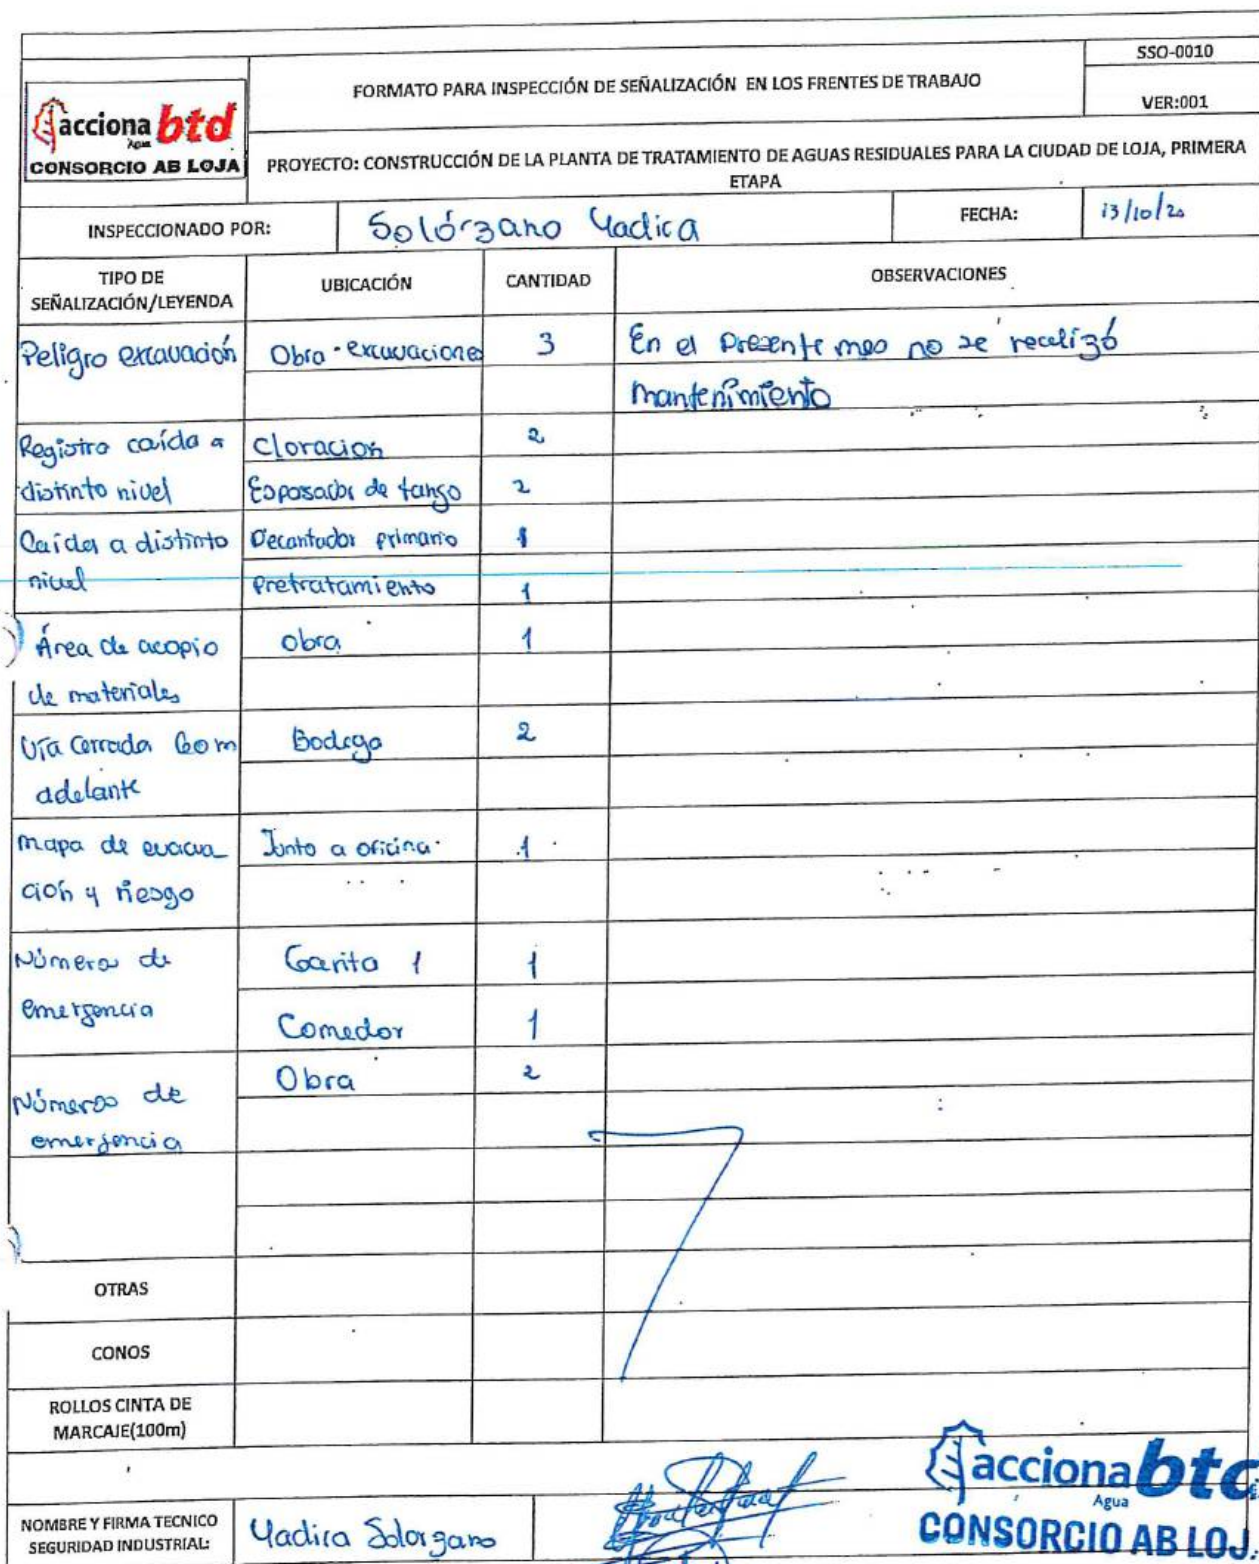 SSO-0010
FORMATO PARA INSPECCIÓN DE SEÑALIZACIÓN EN LOS FRENTES DE TRABAJO
VER:001
acciona btd
Agua
CONSORCIO AB LOJA
PROYECTO: CONSTRUCCIÓN DE LA PLANTA DE TRATAMIENTO DE AGUAS RESIDUALES PARA LA CIUDAD DE LOJA, PRIMERA
ETAPA
INSPECCIONADO POR: Solórzano Yadira FECHA: 13/10/20
TIPO DE
SEÑALIZACIÓN/LEYENDA UBICACIÓN CANTIDAD OBSERVACIONES
Peligro excavación Obra - excavaciones 3 En el presente mes no se realizó
mantenimiento
Registro caída a Cloración 2
distinto nivel Espesador de fango 2
Caída a distinto Decantador primario 1
nivel Pretratamiento 1
Área de acopio Obra 1
de materiales
Vía cerrada 60m Bodega 2
adelante
Mapa de evacua Junto a oficina 1
ción y riesgo
Números de Garita 1 1
emergencia Comedor 1
Números de Obra 2
emergencia
OTRAS
CONOS
ROLLOS CINTA DE
MARCAJE(100m)
NOMBRE Y FIRMA TECNICO
SEGURIDAD INDUSTRIAL: Yadira Solorzano
acciona btd
Agua
CONSORCIO AB LOJ